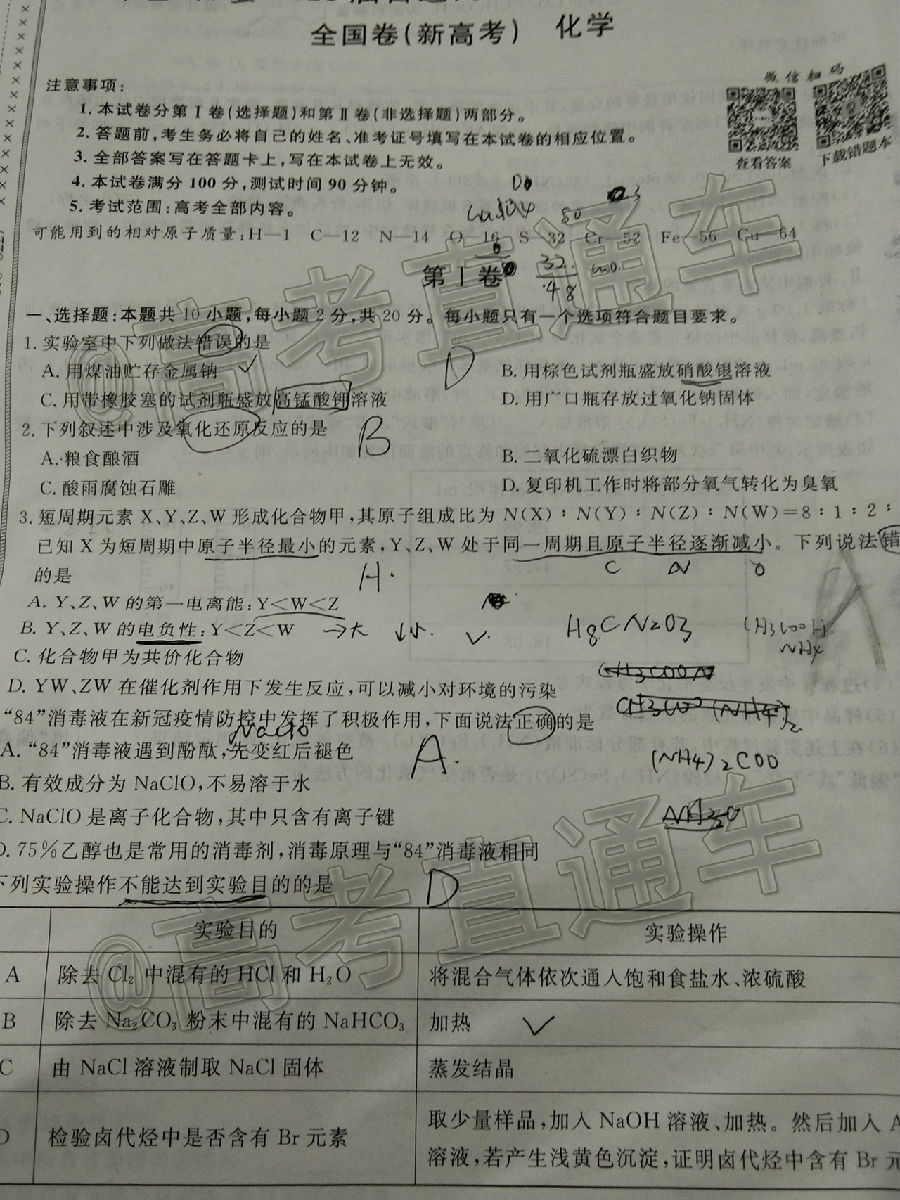 全国卷(新高考) 化学
注意事项:
微信扫码
1.本试卷分第Ⅰ卷(选择题)和第Ⅱ卷(非选择题)两部分。
2.答题前,考生务必将自己的姓名、准考证号填写在本试卷的相应位置。
3.全部答案写在答题卡上,写在本试卷上无效。
查看答案 下载错题本
4.本试卷满分100分,测试时间90分钟。
5.考试范围:高考全部内容。
可能用到的相对原子质量:H—1 C—12 N—14 O—16 S—32 Cr—52 Fe—56 Cu—64
第Ⅰ卷
32
48
一、选择题:本题共10小题,每小题2分,共20分。每小题只有一个选项符合题目要求。
1.实验室中下列做法错误的是
D
A.用煤油贮存金属钠
B.用棕色试剂瓶盛放硝酸银溶液
C.用带橡胶塞的试剂瓶盛放高锰酸钾溶液
D.用广口瓶存放过氧化钠固体
2.下列叙述中涉及氧化还原反应的是 B
A.粮食酿酒
B.二氧化硫漂白织物
C.酸雨腐蚀石雕
D.复印机工作时将部分氧气转化为臭氧
3.短周期元素X、Y、Z、W形成化合物甲,其原子组成比为N(X)∶N(Y)∶N(Z)∶N(W)=8∶1∶2∶
已知X为短周期中原子半径最小的元素,Y、Z、W处于同一周期且原子半径逐渐减小。下列说法错
的是
H. C N O
A.Y、Z、W的第一电离能:Y<W<Z
B.Y、Z、W的电负性:Y<Z<W
H8CN2O3
CH3COOH
NH4
C.化合物甲为共价化合物
D.YW、ZW在催化剂作用下发生反应,可以减小对环境的污染
“84”消毒液在新冠疫情防控中发挥了积极作用,下面说法正确的是
NaClO
A.“84”消毒液遇到酚酞,先变红后褪色
A.
(NH4)2COO
B.有效成分为NaClO,不易溶于水
C.NaClO是离子化合物,其中只含有离子键
D.75%乙醇也是常用的消毒剂,消毒原理与“84”消毒液相同
下列实验操作不能达到实验目的的是 D
实验目的 实验操作
A 除去Cl2中混有的HCl和H2O 将混合气体依次通入饱和食盐水、浓硫酸
B 除去Na2CO3粉末中混有的NaHCO3 加热
C 由NaCl溶液制取NaCl固体 蒸发结晶
D 检验卤代烃中是否含有Br元素 取少量样品,加入NaOH溶液、加热。然后加入A
溶液,若产生浅黄色沉淀,证明卤代烃中含有Br元
@高考直通车
@高考直通车